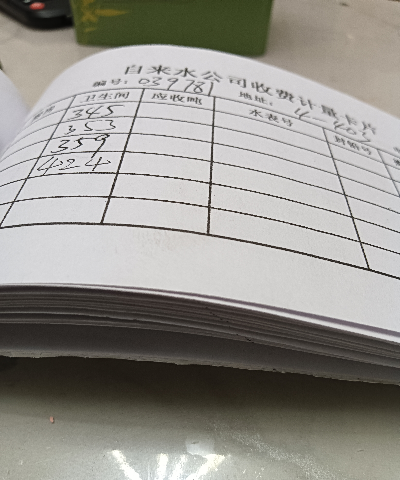 自来水公司收费计量卡片
编号：039781 地址：4-403
卫生间 应收吨 水表号
345
353
359
424